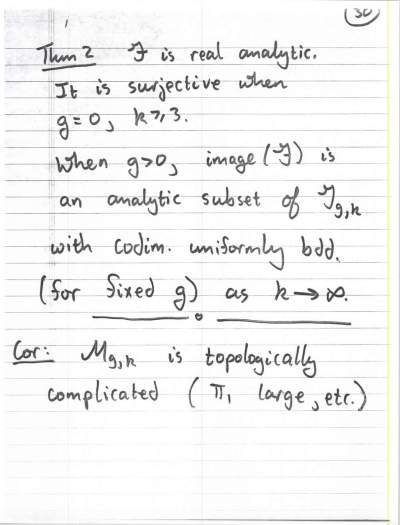 30
Thm 2 ℱ is real analytic.
It is surjective when
g=0, k≥3.
When g>0, image (ℱ) is
an analytic subset of 𝒯g,k
with codim. uniformly bdd.
(for fixed g) as k → ∞.
Cor: Mg,k is topologically
complicated ( π1 large, etc.)